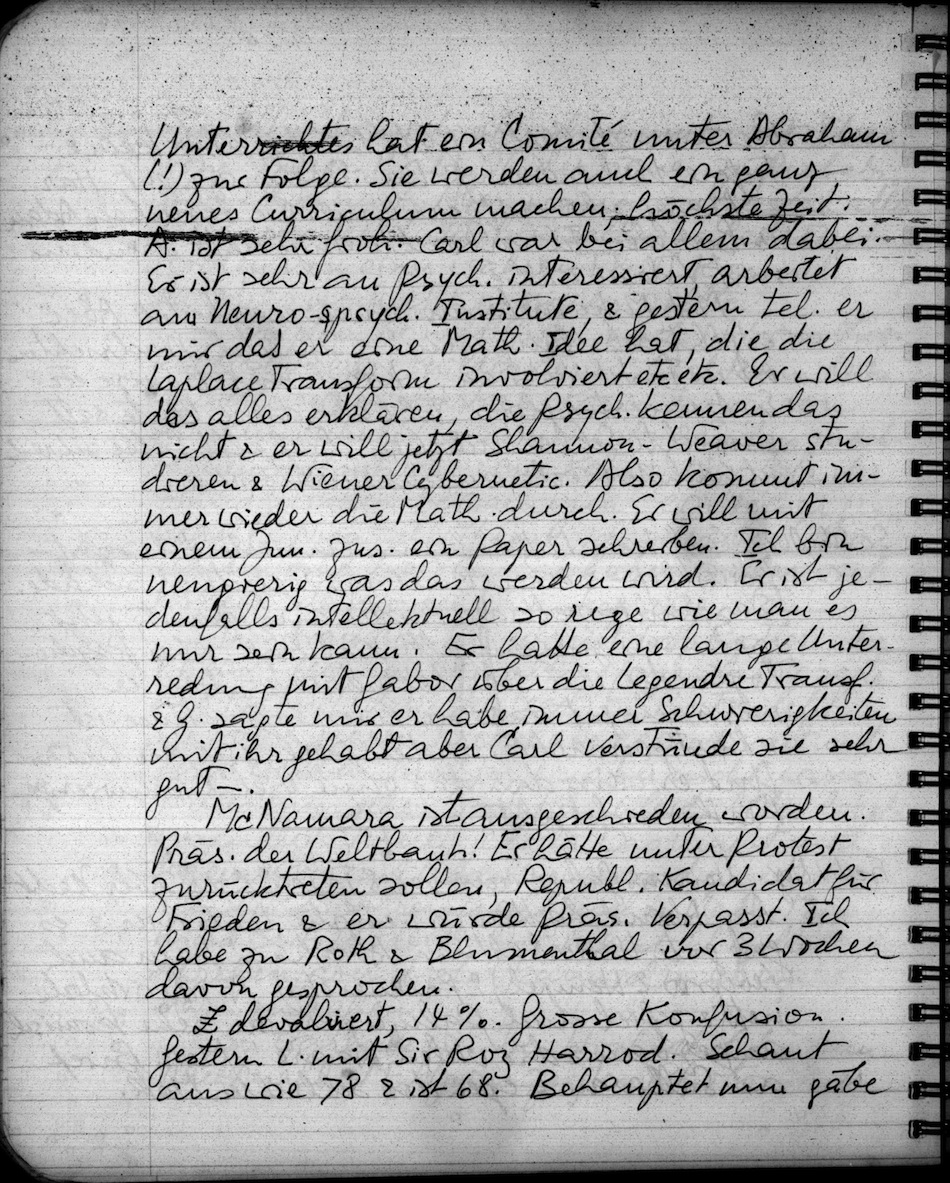 Unterrichtes hat ein Comité unter Abraham
(!) zur Folge. Sie werden auch ein ganz
neues Curriculum machen; höchste Zeit!
A. ist sehr froh. Carl war bei allem dabei.
Er ist sehr an Psych. interessiert, arbeitet
am Neuro-psych. Institute, & gestern tel. er
mir das er eine Math. Idee hat, die die
Laplace Transform involviert etc etc. Er will
das alles erklären, die Psych. kennen das
nicht & er will jetzt Shannon-Weaver stu-
dieren & Wiener Cybernetic. Also kommt im-
mer wieder die Math. durch. Er will mit
einem Jun. zus. ein Paper schreiben. Ich bin
neugierig was das werden wird. Er ist je-
denfalls intellektuell so rege wie man es
nur sein kann. Er hatte eine lange Unter-
redung mit Gabor über die Legendre Transf.
& G. sagte mir er habe immer Schwierigkeiten
mit ihr gehabt aber Carl verstünde sie sehr
gut —.
McNamara ist ausgeschieden worden.
Präs. der Weltbank! Er hätte unter Protest
zurücktreten sollen, Republ. Kandidat für
Frieden & er würde Präs. Verpasst. Ich
habe zu Roth & Blumenthal vor 3 Wochen
davon gesprochen.
£ devaluiert, 14%. Grosse Konfusion.
Gestern L. mit Sir Roy Harrod. Schaut
aus wie 78 & ist 68. Behauptet nun gäbe